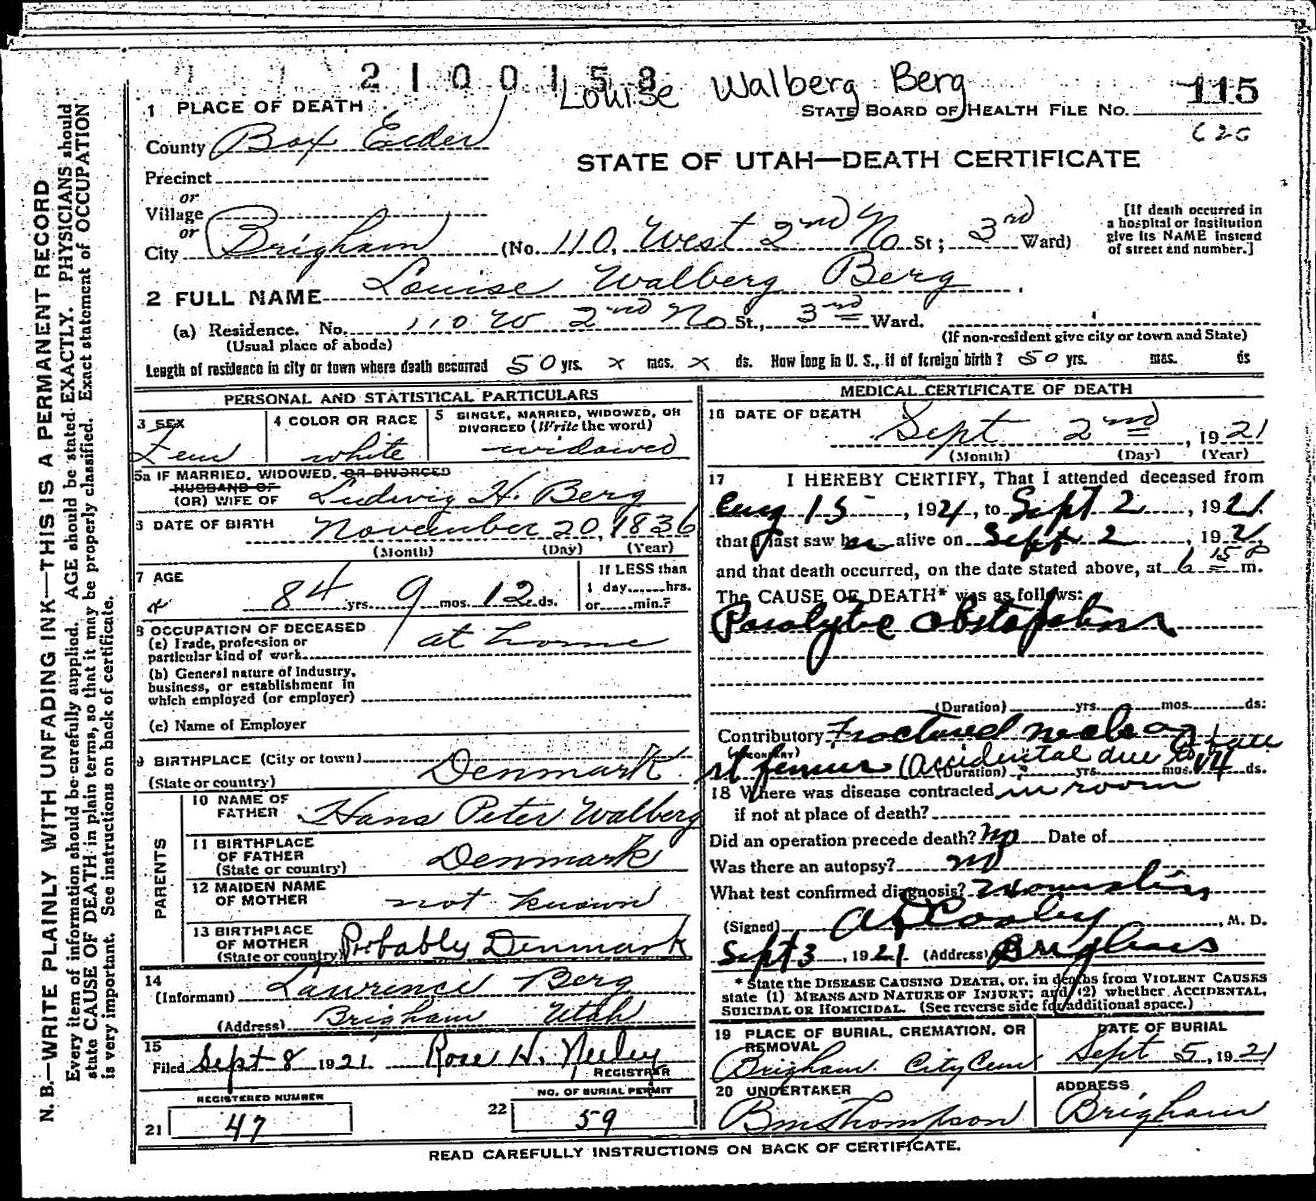 2100158
Louise Walberg Berg
STATE BOARD OF HEALTH FILE NO. 115
620
1 PLACE OF DEATH
County Box Elder
STATE OF UTAH—DEATH CERTIFICATE
Precinct
or
Village
or
City Brigham (No. 110, West 2nd No St; 3rd Ward)
[If death occurred in a hospital or institution give its NAME instead of street and number.]
2 FULL NAME Louise Walberg Berg
(a) Residence. No. 110 W 2nd No St., 3rd Ward.
(Usual place of abode) (If non-resident give city or town and State)
Length of residence in city or town where death occurred 50 yrs. x mos. x ds. How long in U. S., if of foreign birth? 50 yrs. mos. ds
PERSONAL AND STATISTICAL PARTICULARS
3 SEX
Fem
4 COLOR OR RACE
white
5 SINGLE, MARRIED, WIDOWED, OR DIVORCED (Write the word)
widowed
5a IF MARRIED, WIDOWED, OR DIVORCED
HUSBAND OF
(OR) WIFE OF Ludwig H. Berg
6 DATE OF BIRTH November 20, 1836
(Month) (Day) (Year)
7 AGE
84 yrs. 9 mos. 12 ds.
If LESS than
1 day......hrs.
or......min.?
8 OCCUPATION OF DECEASED
(a) Trade, profession or
particular kind of work at home
(b) General nature of Industry,
business, or establishment in
which employed (or employer)
(c) Name of Employer
9 BIRTHPLACE (City or town)
(State or country) Denmark
PARENTS
10 NAME OF FATHER Hans Peter Walberg
11 BIRTHPLACE OF FATHER (State or country) Denmark
12 MAIDEN NAME OF MOTHER not known
13 BIRTHPLACE OF MOTHER (State or country) Probably Denmark
14
(Informant) Lawrence Berg
(Address) Brigham Utah
15
Filed Sept 8 1921 Rose H. Neeley
REGISTRAR
REGISTERED NUMBER
21 47
NO. OF BURIAL PERMIT
22 59
MEDICAL CERTIFICATE OF DEATH
16 DATE OF DEATH
Sept 2nd, 1921
(Month) (Day) (Year)
17 I HEREBY CERTIFY, That I attended deceased from
Aug 15, 1921, to Sept 2, 1921
that I last saw her alive on Sept 2, 1921
and that death occurred, on the date stated above, at 6 15 P m.
The CAUSE OF DEATH* was as follows:
Paralytic
(Duration) yrs. mos. ds.
Contributory Fractured neck of
rt femur (accidental due to fall
(Duration) yrs. mos. 14 ds.
18 Where was disease contracted in room
if not at place of death?
Did an operation precede death? No Date of
Was there an autopsy? no
What test confirmed diagnosis?
(Signed) Cooley, M. D.
Sept 3, 1921 (Address) Brigham
* State the DISEASE CAUSING DEATH, or, in deaths from VIOLENT CAUSES
state (1) MEANS AND NATURE OF INJURY; and (2) whether ACCIDENTAL,
SUICIDAL OR HOMICIDAL. (See reverse side for additional space.)
19 PLACE OF BURIAL, CREMATION, OR REMOVAL
Brigham City Cem
DATE OF BURIAL
Sept 5, 1921
20 UNDERTAKER
BM Thompson
ADDRESS
Brigham
READ CAREFULLY INSTRUCTIONS ON BACK OF CERTIFICATE.
N. B.—WRITE PLAINLY WITH UNFADING INK—THIS IS A PERMANENT RECORD
Every item of information should be carefully supplied. AGE should be stated EXACTLY. PHYSICIANS should
state CAUSE OF DEATH in plain terms, so that it may be properly classified. Exact statement of OCCUPATION
is very important. See instructions on back of certificate.